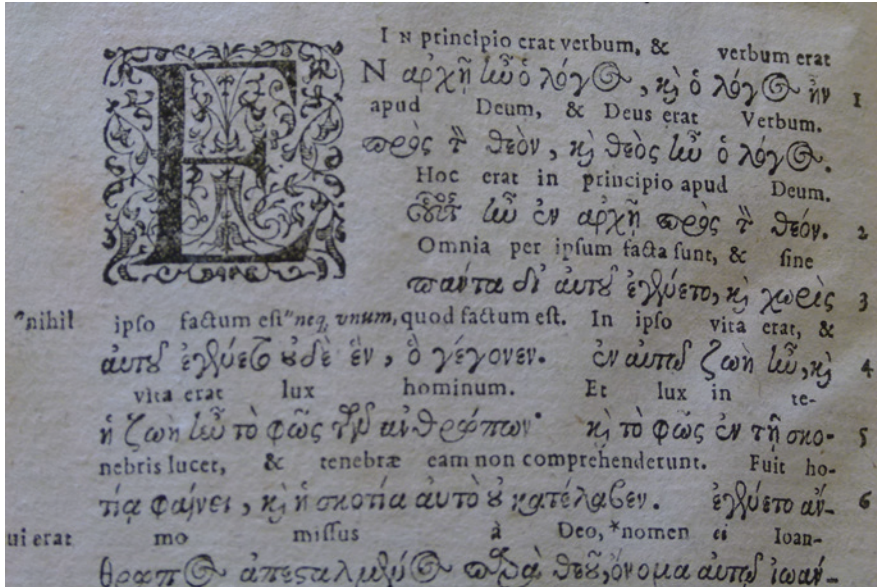 IN principio erat verbum, & verbum erat
EN ἀρχῇ ἦν ὁ λόγος, καὶ ὁ λόγος ἦν 1
apud Deum, & Deus erat Verbum.
πρὸς τὸν θεὸν, καὶ θεὸς ἦν ὁ λόγος.
Hoc erat in principio apud Deum.
οὗτος ἦν ἐν ἀρχῇ πρὸς τὸν θεόν. 2
Omnia per ipsum facta sunt, & sine
πάντα δι' αὐτοῦ ἐγένετο, καὶ χωρὶς 3
"nihil ipso factum est "neq; vnum, quod factum est. In ipso vita erat, &
αὐτοῦ ἐγένετο οὐδὲ ἓν, ὃ γέγονεν. ἐν αὐτῷ ζωὴ ἦν, καὶ 4
vita erat lux hominum. Et lux in te-
ἡ ζωὴ ἦν τὸ φῶς τῶν ἀνθρώπων· καὶ τὸ φῶς ἐν τῇ σκο- 5
nebris lucet, & tenebræ eam non comprehenderunt. Fuit ho-
τίᾳ φαίνει, καὶ ἡ σκοτία αὐτὸ οὐ κατέλαβεν. ἐγένετο ἄν- 6
ui erat mo missus à Deo, *nomen ei Ioan-
θρωπος ἀπεσταλμένος παρὰ θεοῦ, ὄνομα αὐτῷ ἰωάν-